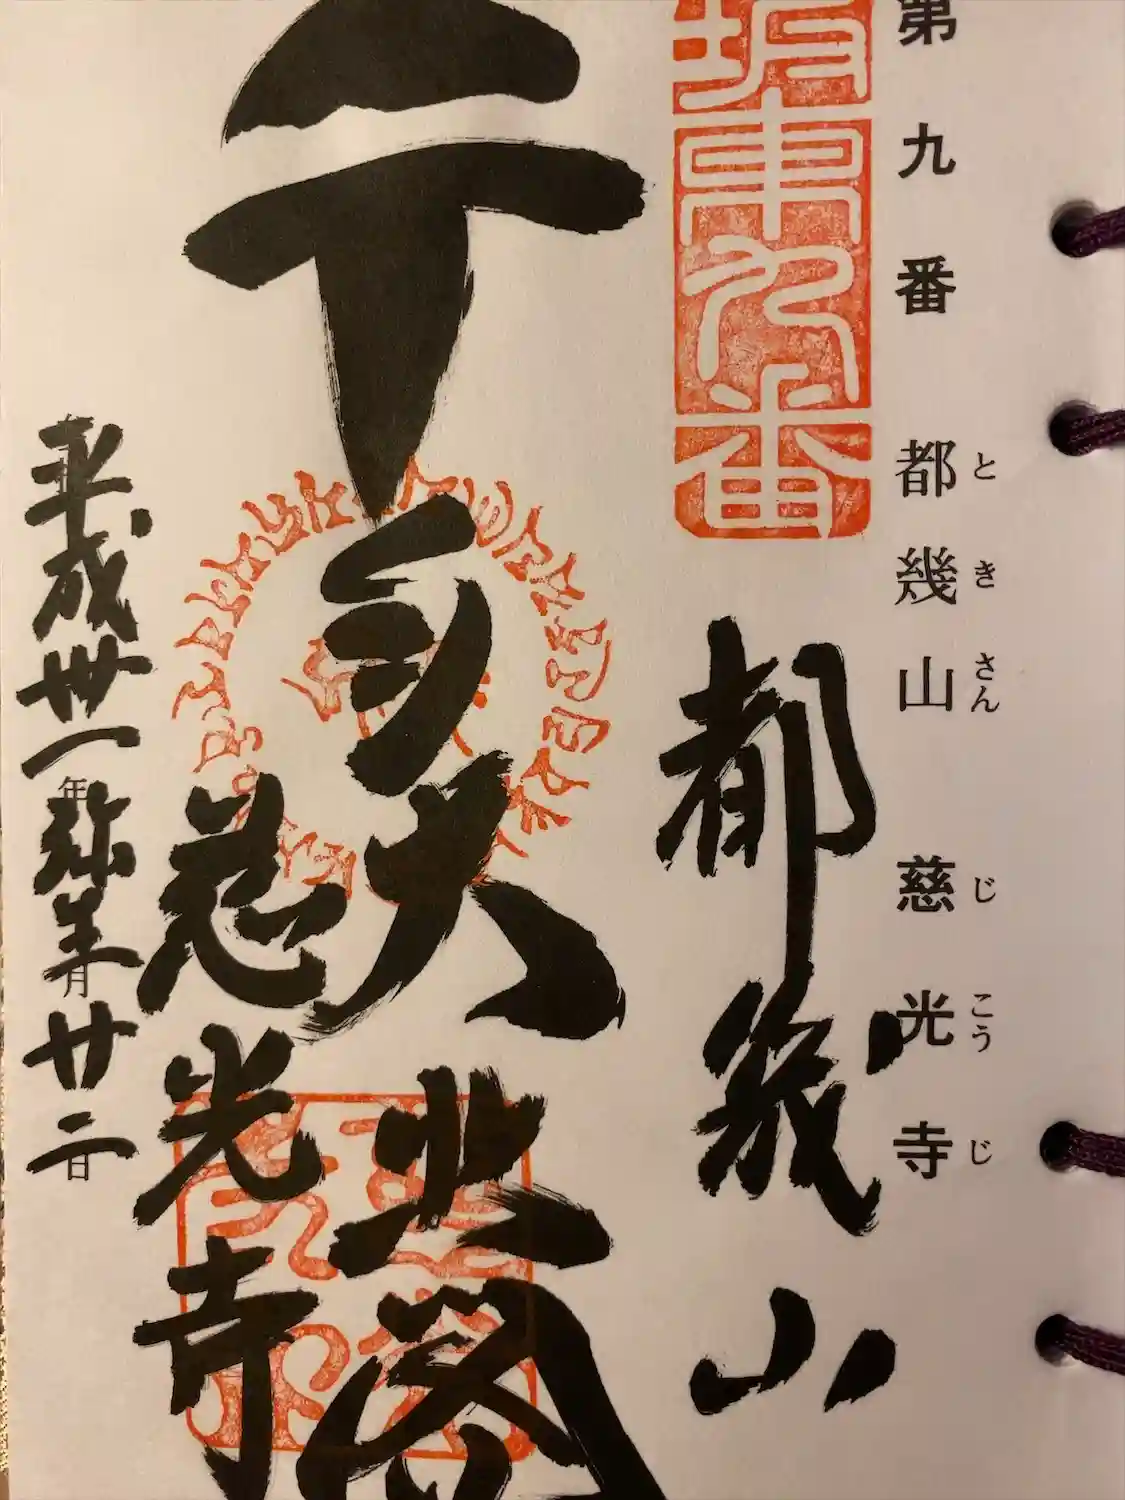 第九番 都幾山 慈光寺
と き さん じ こう じ
坂東九番
都幾山
千手大悲閣
慈光寺
平成卅一年弥生月廿二日